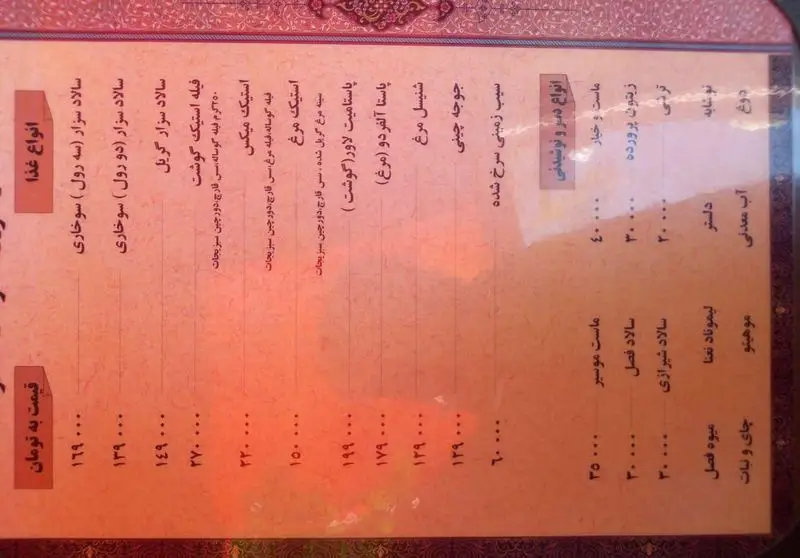 انواع غذا قیمت به تومان
سالاد سزار (سه رول) سوخاری ۱۶۹۰۰۰
سالاد سزار (دو رول) سوخاری ۱۳۹۰۰۰
سالاد سزار گریل ۱۴۹۰۰۰
فیله استیک گوشت ۲۷۰۰۰۰
۲۵۰گرم فیله گوساله،سس قارچ،دورچین سبزیجات
استیک میکس ۲۲۰۰۰۰
فیله گوساله،فیله مرغ،سس قارچ،دورچین سبزیجات
استیک مرغ ۱۵۰۰۰۰
سینه مرغ گریل شده ، سس قارچ،دورچین سبزیجات
پاستامیت لاور(گوشت ) ۱۹۹۰۰۰
پاستا آلفردو (مرغ) ۱۷۹۰۰۰
شنیسل مرغ ۱۲۹۰۰۰
جوجه چینی ۱۲۹۰۰۰
سیب زمینی سرخ شده ۶۰۰۰۰
انواع دسر و نوشیدنی
ماست و خیار ۴۰۰۰۰ ماست موسیر ۳۵۰۰۰
زیتون پرورده ۳۰۰۰۰ سالاد فصل ۳۰۰۰۰
ترشی ۲۰۰۰۰ سالاد شیرازی ۳۰۰۰۰
نوشابه دلستر لیموناد نعنا میوه فصل
دوغ آب معدنی موهیتو چای و نبات